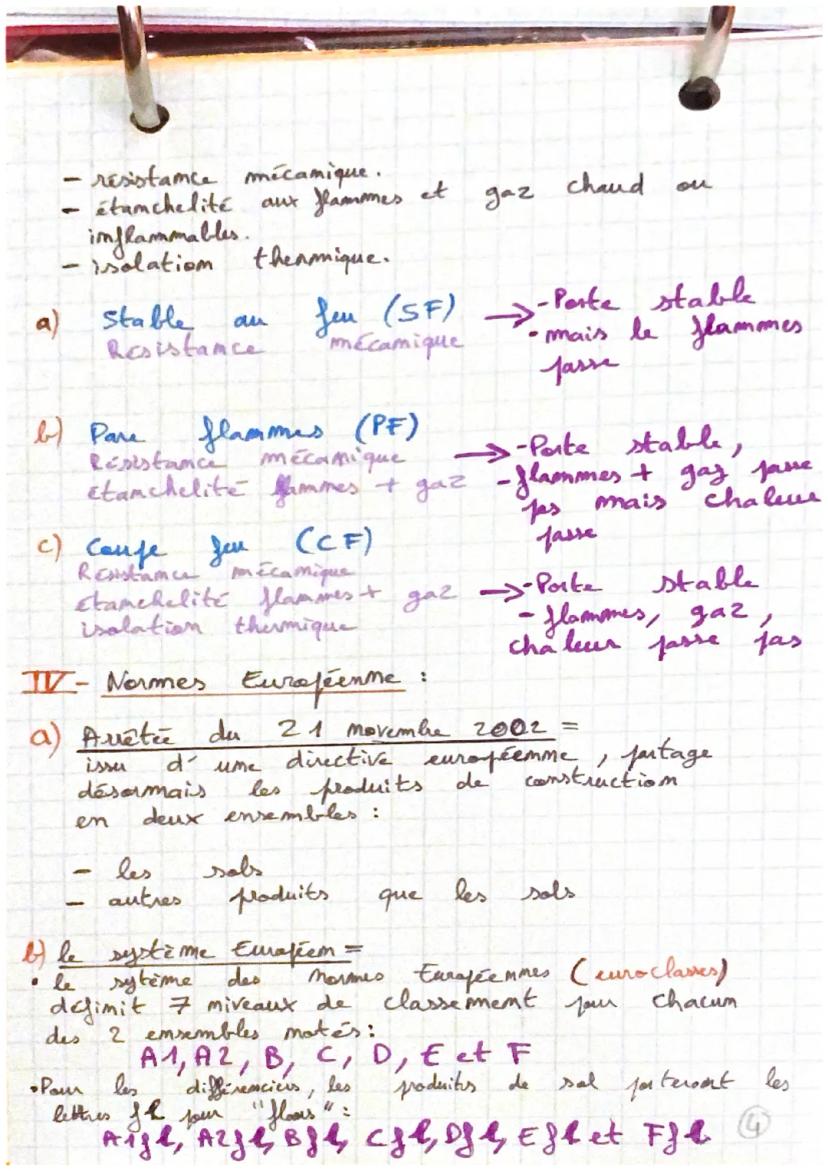 - résistance mécanique.
- étanchelité aux flammes et gaz chaud ou
inflammables.
- isolation thermique.
a) Stable au feu (SF) → - Porte stable
Résistance mécanique - mais le flammes
passe
b) Pare flammes (PF)
Résistance mécanique → - Porte stable,
étanchelité flammes + gaz - flammes + gaz passe
pas mais chaleur
passe
c) Coupe feu (CF)
Résistance mécanique
étanchelité flammes + gaz → - Porte stable
isolation thermique - flammes, gaz,
chaleur passe pas
IV - Normes Européenne :
a) Arrêtée du 21 novembre 2002 =
issu d'une directive européenne, partage
désormais les produits de construction
en deux ensembles :
- les sols
- autres produits que les sols
b) le système Européen =
• le sytème des normes Européennes (euroclasses)
définit 7 niveaux de classement pour chacun
des 2 ensembles notés :
A1, A2, B, C, D, E et F
• Pour les différenciers, les produits de sol porteront les
lettres fl pour "floors" :
A1fl, A2fl, Bfl, Cfl, Dfl, Efl et Ffl
4